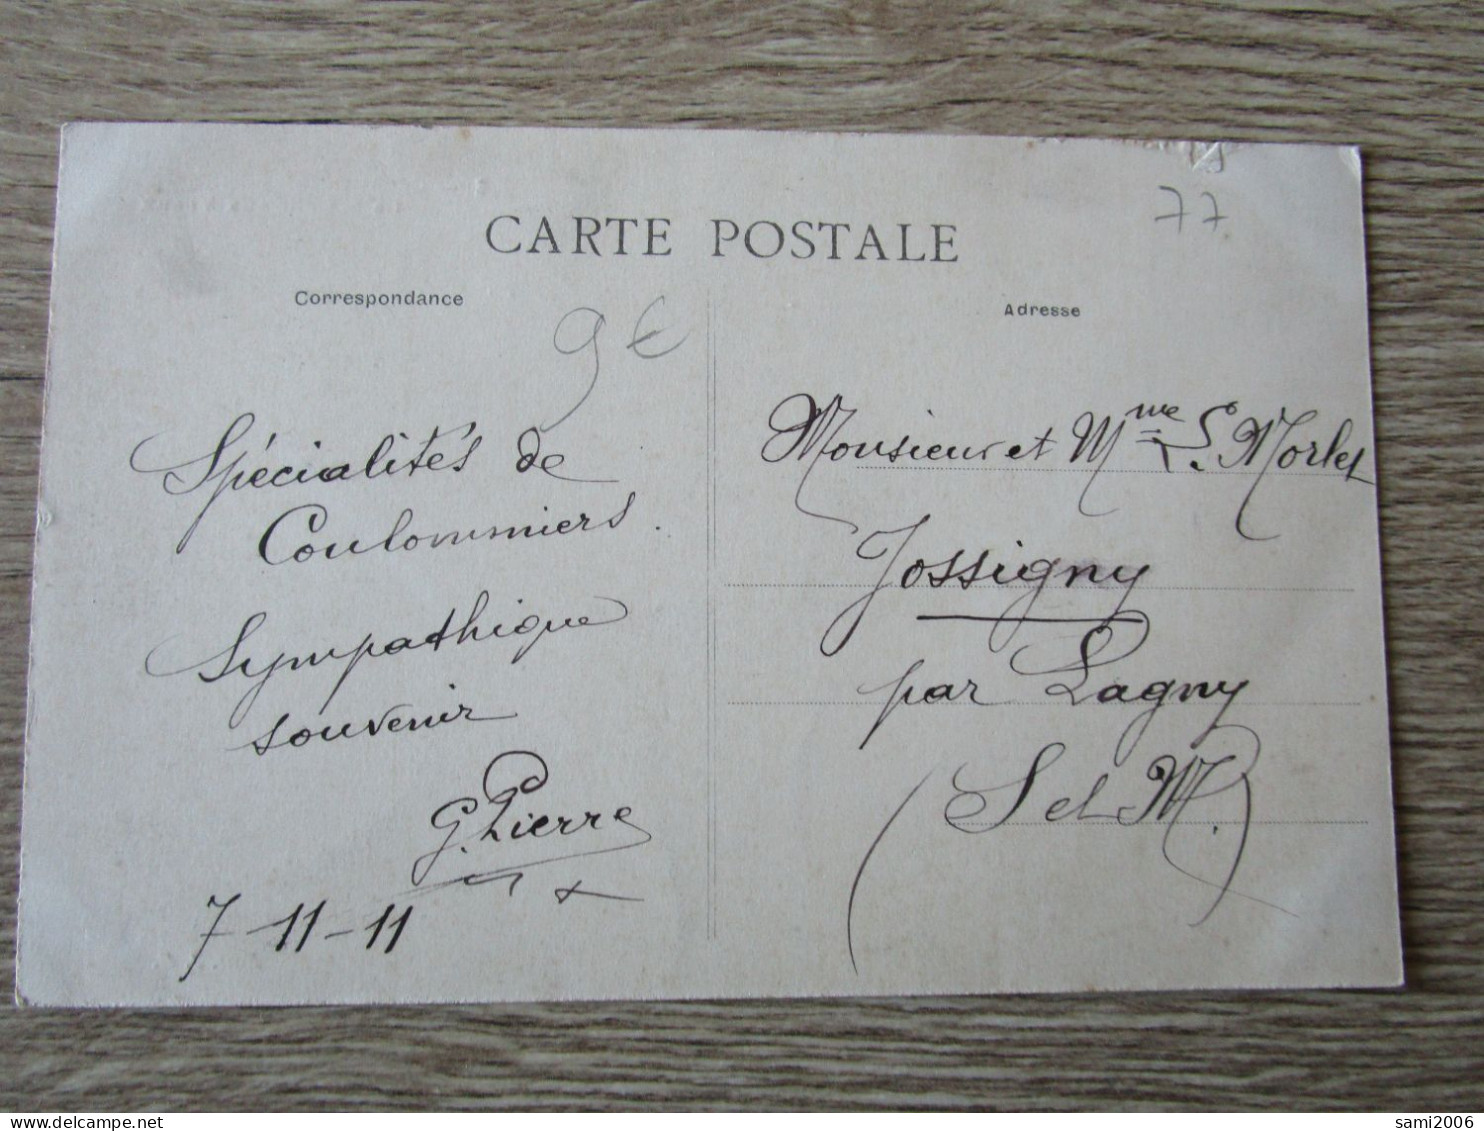 77
CARTE POSTALE
Correspondance
Adresse
9€
Spécialités de
Coulommiers.
Sympathique
souvenir
G. Pierre
7-11-11
Monsieur et Mme L. Morlet
Jossigny
par Lagny
(S et M.)
delcampe.net
sami2006